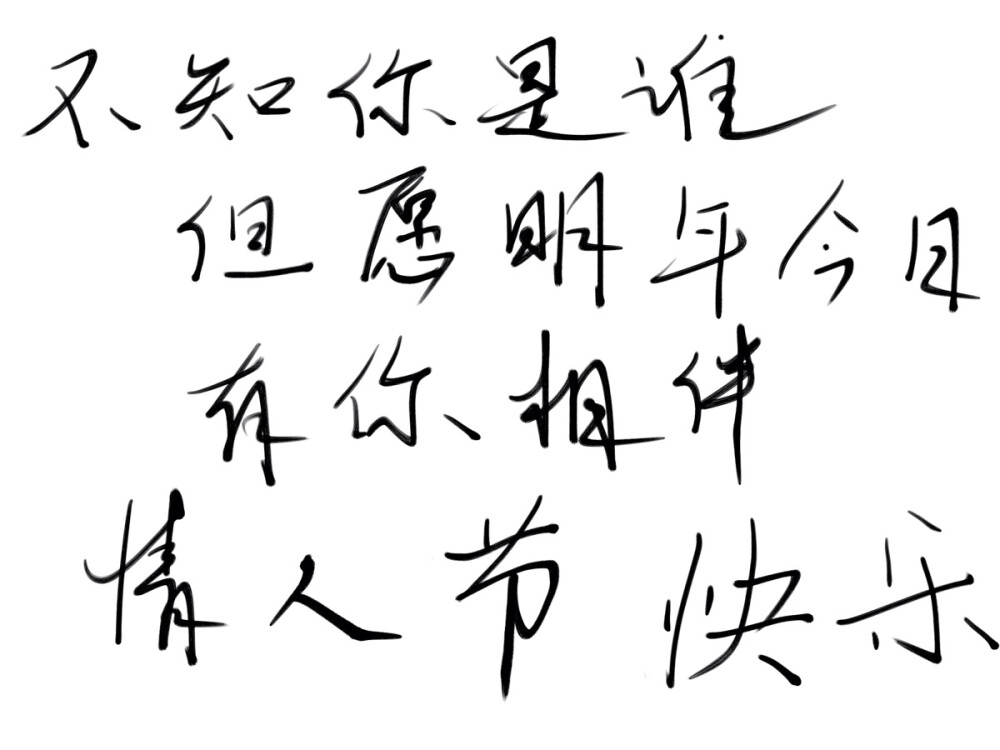 不知你是谁
但愿明年今日
有你相伴
情人节快乐